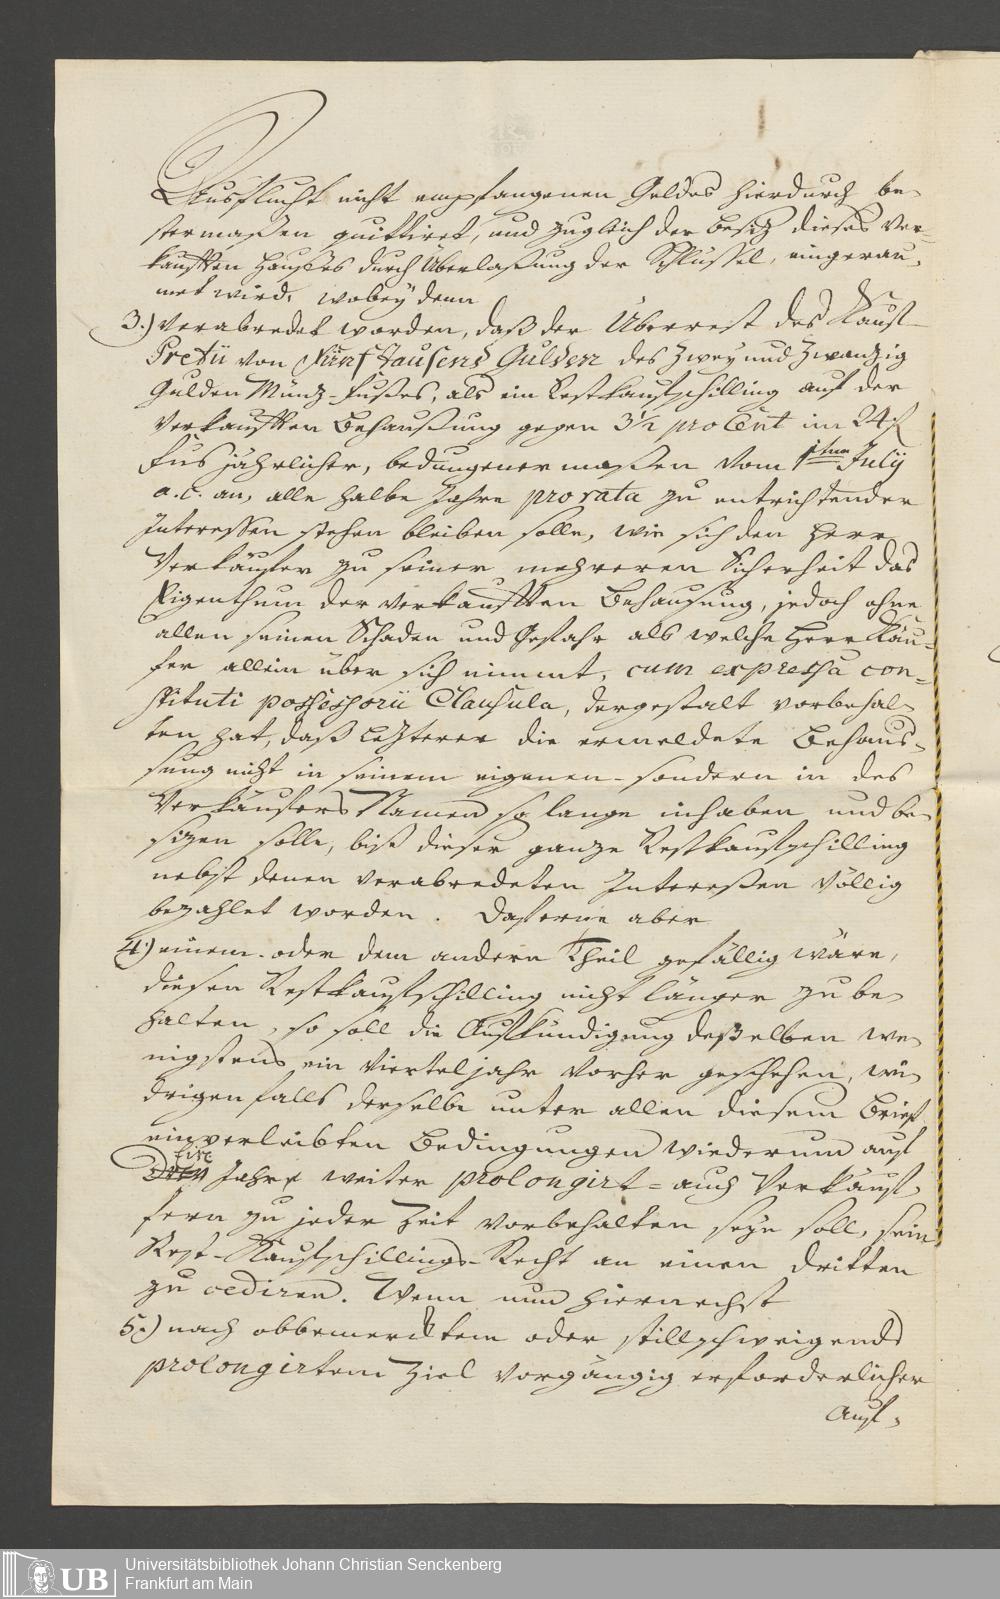 Ausflucht nicht empfangenen Geldes hierdurch be-
stermaßen quittiret, und zugleich der Besiz dieses ver-
kaufften Haußes durch Überlaßung der Schlüssel, eingerau-
met wird, wobey denn
3.) verabredet worden, daß der Überrest des Kauf-
Pretii von Fünf Tausend Gulden des Zwey und Zwanzig
Gulden Münz-Fußes, als ein Restkaufschilling auf der
verkaufften Behaußung gegen 3½ pro Cent im 24 f
Fus jährlicher, bedungener maßen vom 1tum July
a. c. an, alle halbe Jahre pro rata zu entrichtender
Interessen stehen bleiben solle, wie sich den Herr
Verkäufer zu seiner mehreren Sicherheit das
Eigenthum der verkaufften Behausung, jedoch ohne
allen seinen Schaden und Gefahr als welche Herr Käu-
fer allein über sich nimmt, cum expressa con-
stituti possessorii Clausula, dergestalt vorbehal-
ten hat, daß Lezterer die ermeldete Behaus-
sung nicht in seinem eigenen- sondern in des
Verkäufers Namen so lange inhaben und be-
sizen solle, biß dieser ganze Restkaufschilling
nebst denen verabredeten Interessen völlig
bezahlet worden. Daferne aber
4.) einem- oder dem andern Theil gefällig wäre,
diesen Restkaufschilling nicht länger zu be-
halten, so soll die Aufkündigung deßelben we-
nigstens ein Viertel jahr vorher geschehen, wi-
drigenfalls derselbe unter allen diesem Brief
einverleibten Bedingungen wiederum auf
Drey Jahre weiter prolongirt- auch Verkäuf-
fern zu jeder Zeit vorbehalten seyn soll, sein
Rest-Kaufschillings-Recht an einen dritten
zu cediren. Wenn nun hiernechst
5.) nach obbemerktem oder stillschweigend
prolongirtem Ziel vorgängig erforderlicher
Auf-
UB Universitätsbibliothek Johann Christian Senckenberg
Frankfurt am Main